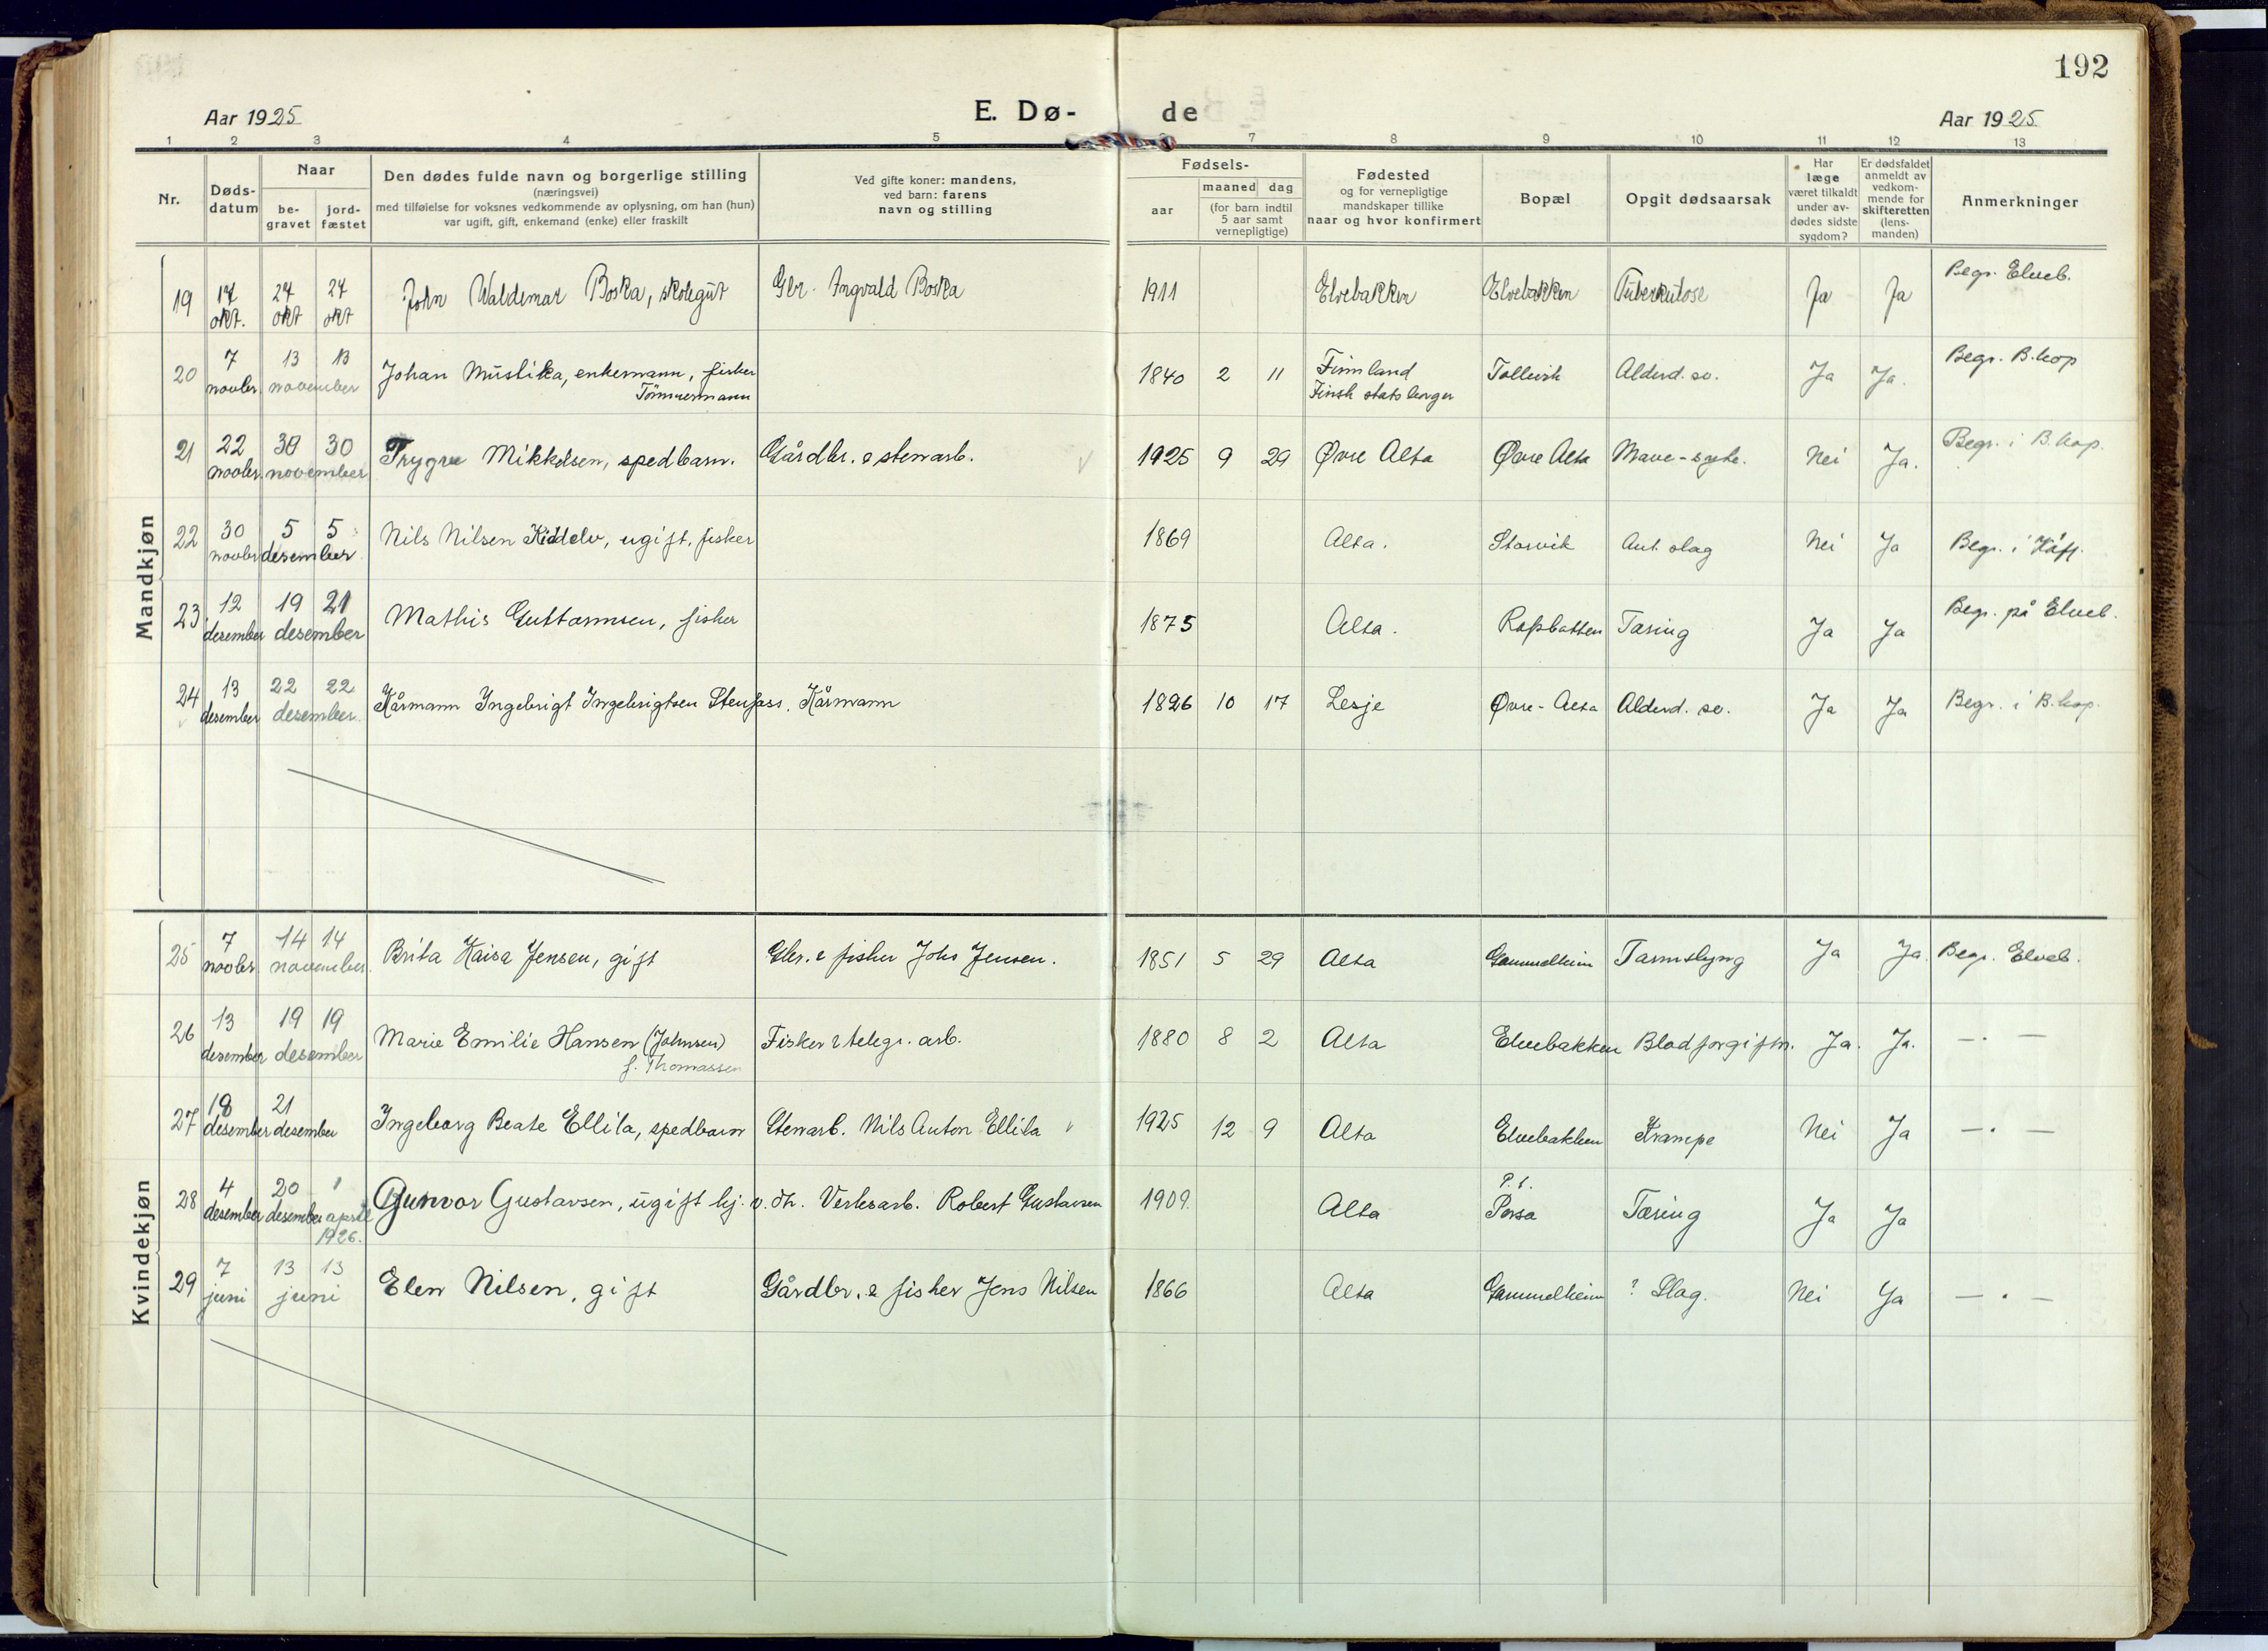 192
Aar 1925
E. Dø-
de
Aar 1925
1 2 3 4 5 7 8 9 10 11 12 13
Nr.
Døds-
datum
Naar
be-
gravet
jord-
fæstet
Den dødes fulde navn og borgerlige stilling
(næringsvei)
med tilføielse for voksnes vedkommende av oplysning, om han (hun)
var ugift, gift, enkemand (enke) eller fraskilt
Ved gifte koner: mandens,
ved barn: farens
navn og stilling
Fødsels-
aar
maaned dag
(for barn indtil
5 aar samt
vernepligtige)
Fødested
og for vernepligtige
mandskaper tillike
naar og hvor konfirmert
Bopæl
Opgit dødsaarsak
Har
læge
været tilkaldt
under av-
dødes sidste
sygdom?
Er dødsfaldet
anmeldt av
vedkom-
mende for
skifteretten
(lens-
manden)
Anmerkninger
Mandkjøn
19 17 okt. 24 okt 24 okt John Waldemar Boska, skolegut Gbr. Ingvald Boska 1911 Elvebakken Elvebakken Tuberkulose Ja Ja Begr. Elveb.
20 7 novbr. 13 13 november Johan Mustika, enkemann, fisker
Tömmermann
1840 2 11 Finnland
Finsk statsborger
Alderd. sv. Ja Ja. Begr. B.kop
21 22 novbr. 30 30 november Trygve Mikkelsen, spedbarn. Gårdbr. & stenarb. 1925 9 29 Øvre Alta Øvre Alta Mave-syke. Nei Ja. Begr. i B.kop.
22 30 novbr 5 5 desember Nils Nilsen Kiddelv, ugift, fisker 1869 Alta. Storvik Ant. slag Nei Ja Begr. i Kåfj.
23 12 desember 19 21 desember Mathis Guttormsen, fisker 1875 Alta. Tæring Ja Ja Begr. på Elveb.
24 13 desember 22 22 desember Kårmann Ingebrigt Ingebrigtsen Stenfass. Kårmann 1826 10 17 Lesje Øvre-Alta Alderd. sv. Ja Ja Begr. i B.kop.
Kvindekjøn
25 7 novbr. 14 14 november. Brita Kaisa Jensen, gift Gbr. & fisker Johs Jensen. 1851 5 29 Alta Gammelheim Tarmslyng Ja Ja. Begr. Elveb.
26 13 desember 19 19 desember Marie Emilie Hansen (Johnsen)
f. Thomassen
Fisker & telegr. arb. 1880 8 2 Alta Elvebakken Blodforgiftn. Ja. Ja. — . —
27 18 desember 21 desember Ingeborg Beate Ellila, spedbarn Stenarb. Nils Anton Ellila 1925 12 9 Alta Elvebakken Krampe Nei Ja — . —
28 4 desember 20 desember 1 april
1926.
Gunvor Gustavsen, ugift hj. v. dtr. Verksarb. Robert Gustavsen 1909. Alta P.t.
Porsa Tæring Ja Ja
29 7 juni 13 13 juni Elen Nilsen, gift Gårdbr. & fisker Jens Nilsen 1866 Alta Gammelheim ? Slag. Nei Ja — . —